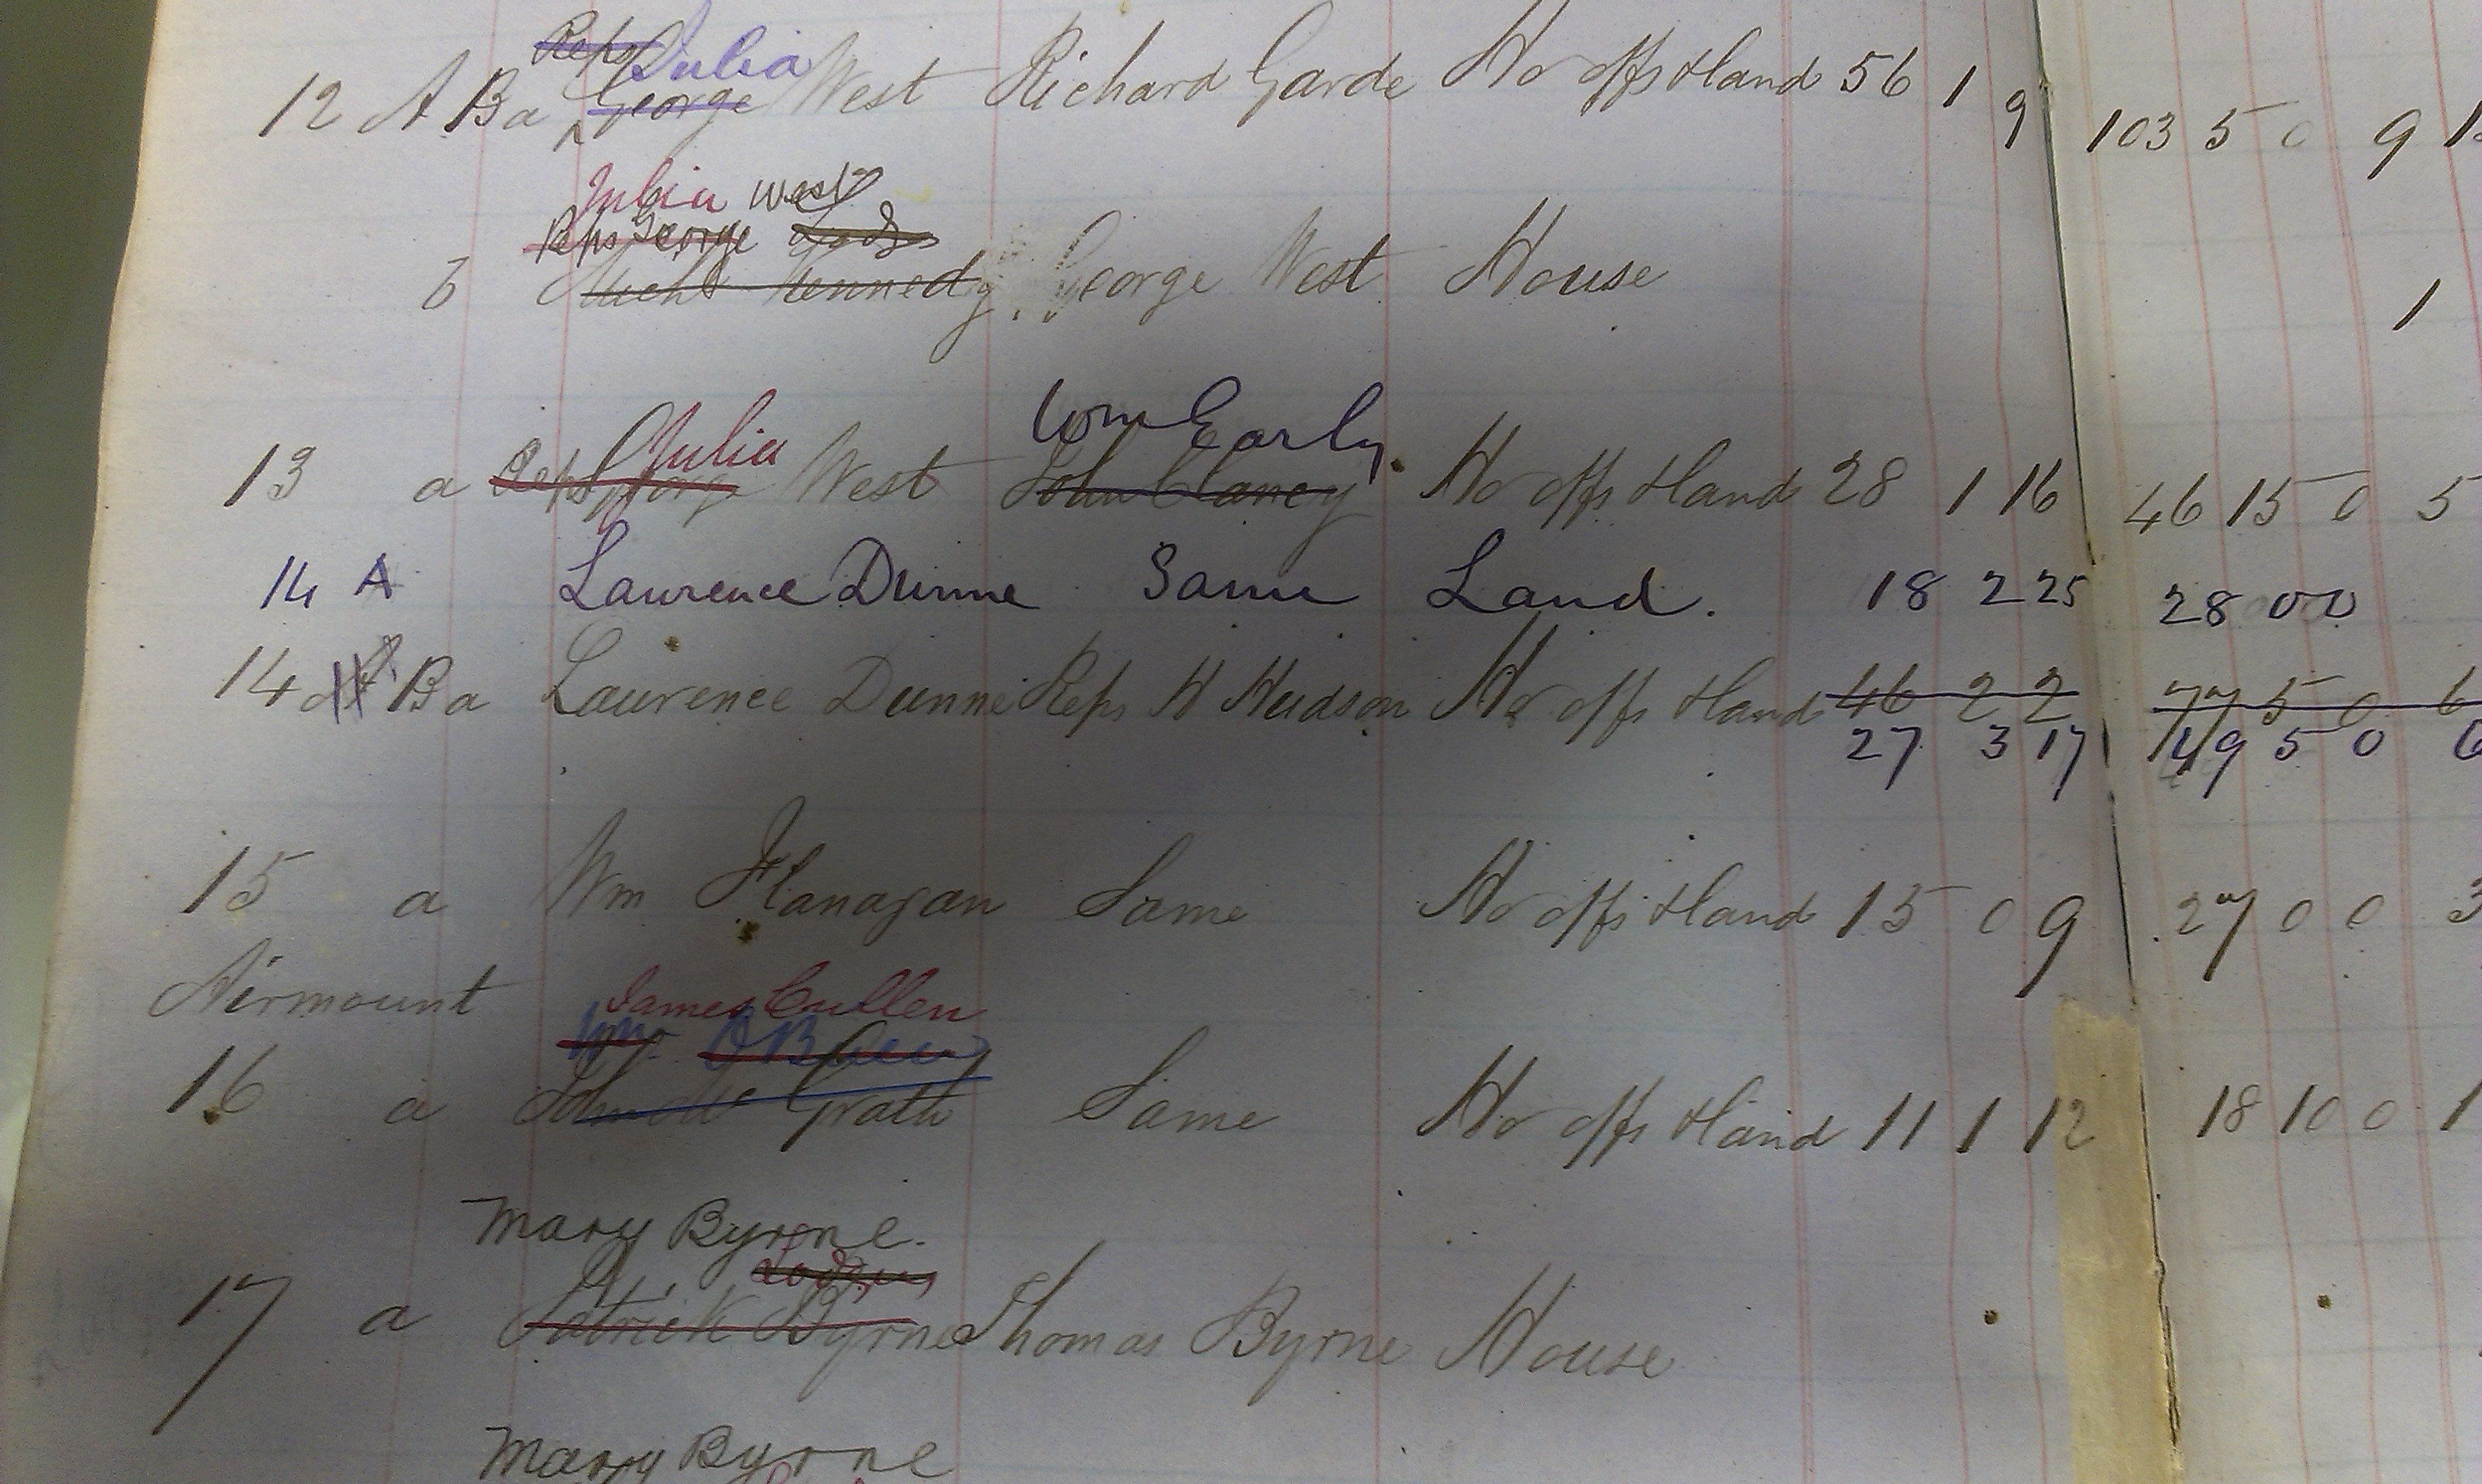 Reps Julia
12 A Ba George West Richard Garde Ho offs & land 56 1 9 103 5 0 9
Julia West
Reps George
b Michl Kennedy George West House 1
Julia Wm Early
13 a Reps George West John Clancy Ho offs & land 28 1 16 46 15 0 5
14 A Laurence Dunne Same Land. 18 2 25 28 0 0
14 A Ba Laurence Dunne Reps H Hudson Ho offs & land 46 2 2 77 5 0 6
27 3 17 49 5 0 6
15 a Wm Flanagan Same Ho offs & land 15 0 9 27 0 0 3
Airmount
James Cullen
Wm
16 a John Mc Grath Same Ho offs & land 11 1 12 18 10 0 1
Mary Byrne.
Lodgers
17 a Patrick Byrne Thomas Byrne House
Mary Byrne